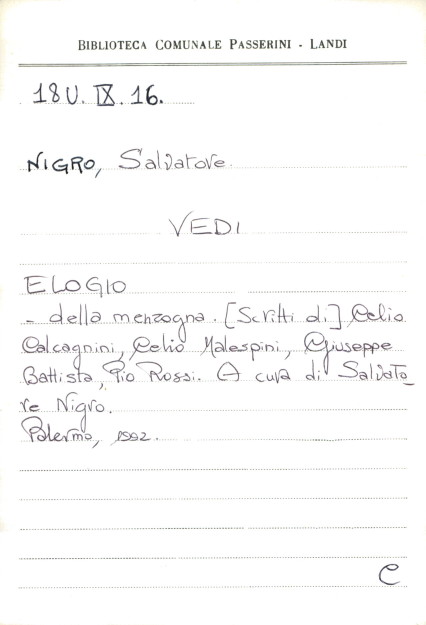 BIBLIOTECA COMUNALE PASSERINI - LANDI
18U. IX. 16.
NIGRO, Salvatore.
VEDI
ELOGIO
- della menzogna. [Scritti di] Celio
Calcagnini, Celio Malespini, Giuseppe
Battista, Pio Rossi. A cura di Salvato_
re Nigro.
Palermo, 1992.
C